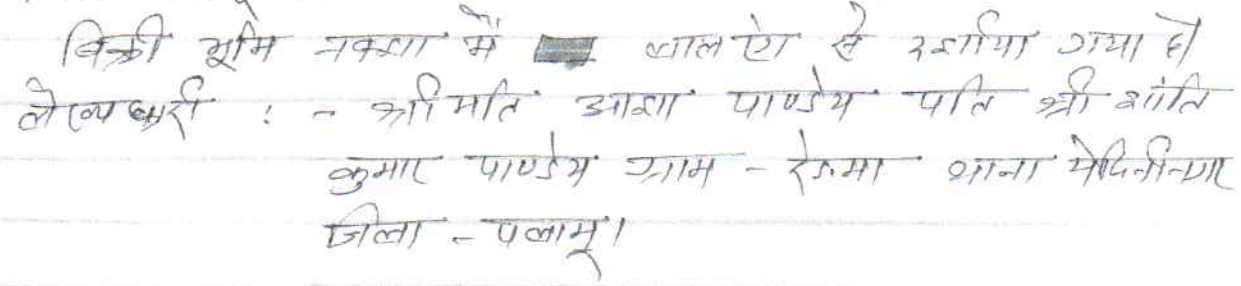 बिक्री भूमि नक्शा में लाल रंग से दर्शाया गया है।
लेख्यधारी : - श्रीमति आशा पाण्डेय पति श्री शांति
कुमार पाण्डेय ग्राम - रेड़मा थाना मेदिनीनगर
जिला - पलामू।